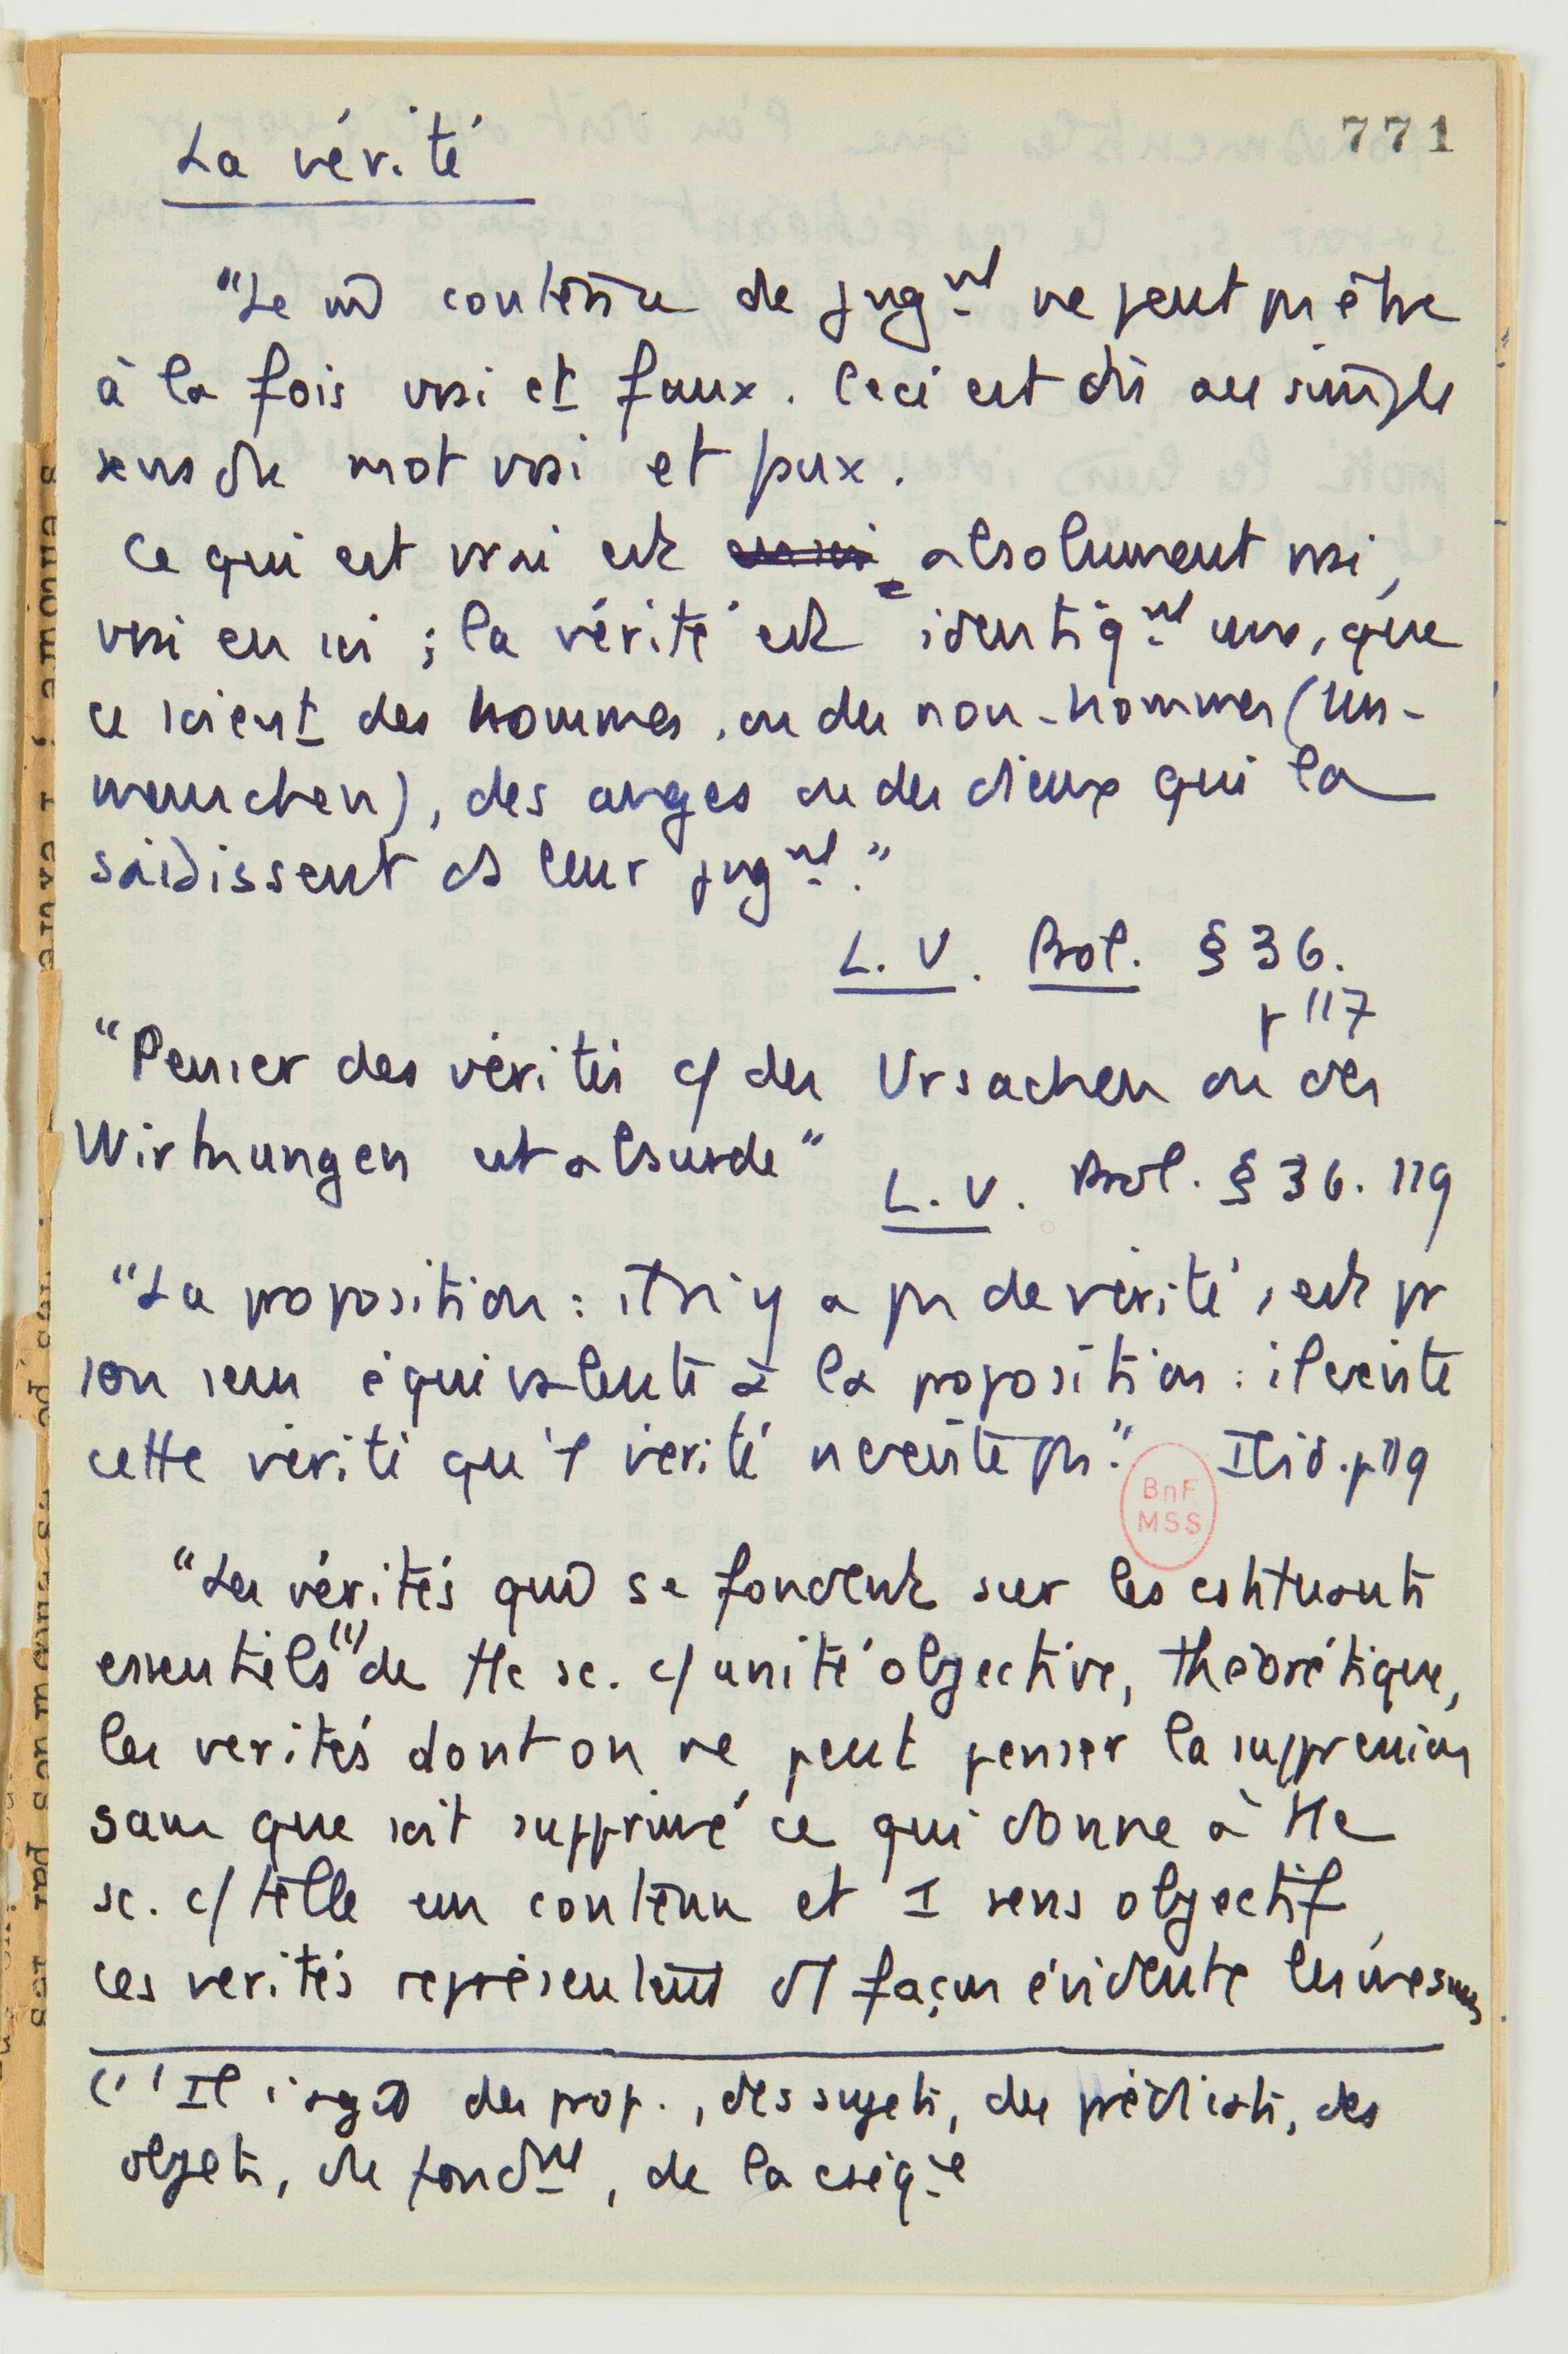 771
La vérité
"Le m̂ contenu de jugᵐᵗ ne peut pas être
à la fois vrai et faux. Ceci est dû au simple
sens du mot vrai et faux.
Ce qui est vrai est absolument vrai,
vrai en soi ; la vérité est identiqᵐᵗ une, que
ce soient des hommes, ou des non-hommes (Un-
menschen), des anges ou des dieux qui la
saisissent ds leur jugᵐᵗ."
L. V. Bol. § 36.
p 117
"Penser des vérités c/ des Ursachen ou des
Wirkungen est absurde"
L. V. Bol. § 36. 119
"La proposition : il n'y a pas de vérité, est pr
son sens équivalente à la proposition : il existe
cette vérité qu'1 vérité n'existe pas." Ibid. p 119
BnF
MSS
"Les vérités qui se fondent sur les cstituants
essentiels⁽¹⁾ de tte sc. c/ unité objective, théorétique,
les vérités dont on ne peut penser la suppression
sans que soit supprimé ce qui donne à tte
sc. c/ telle un contenu et 1 sens objectif,
ces vérités représentent d'1 façon évidente les mesures
(1) Il s'agit des prop., des sujets, des prédicats, des
objets, du fondᵐᵗ, de la cséqᶜᵉ